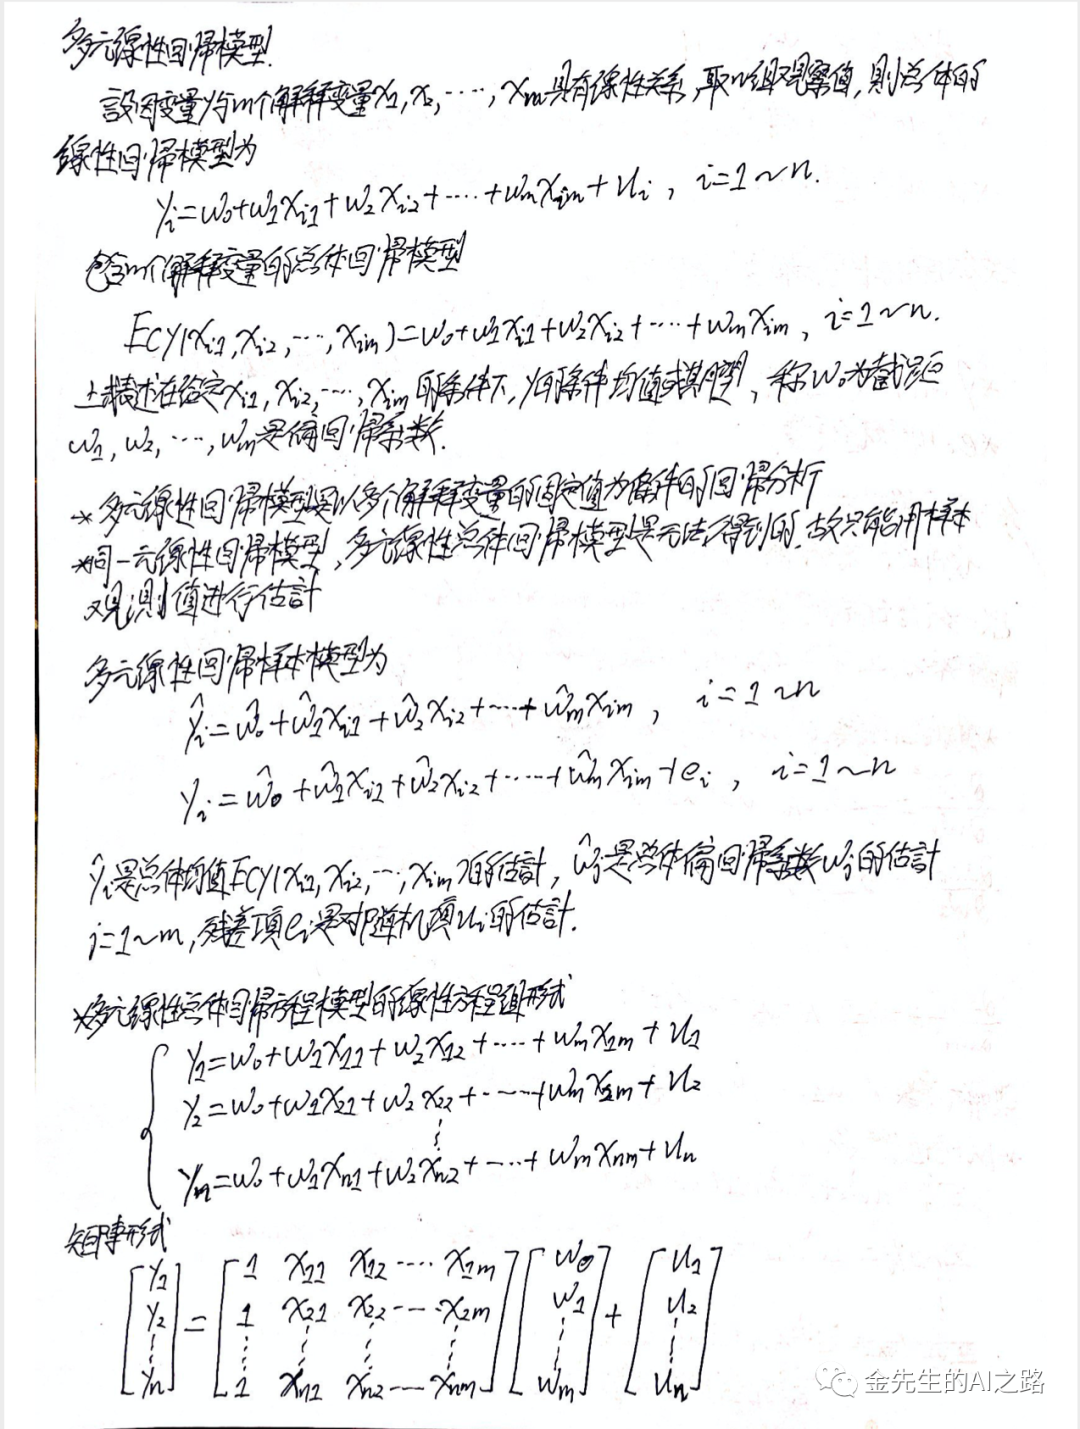 多元線性回帰模型.
設因变量y与m个解释变量x₁, x₂, ····, xₘ具有線性关系,取n组观察值,則总体的
線性回帰模型为
yᵢ=w₀+w₁xᵢ₁+w₂xᵢ₂+····+wₘxᵢₘ+uᵢ, i=1~n.
包含m个解释变量的总体回帰模型
E(y|xᵢ₁,xᵢ₂,···,xᵢₘ)=w₀+w₁xᵢ₁+w₂xᵢ₂+····+wₘxᵢₘ, i=1~n.
上式表述在给定xᵢ₁, xᵢ₂, ···, xᵢₘ的条件下,y的条件均值或期望, 称w₀为截距
w₁, w₂, ···, wₘ是偏回帰系数.
* 多元線性回帰模型是以多个解释变量的固定值为條件的回帰分析
*同一元線性回帰模型,多元線性总体回帰模型是无法得到的.故只能用样本
观測值进行估計
多元線性回帰样本模型为
ŷᵢ=ŵ₀+ŵ₁xᵢ₁+ŵ₂xᵢ₂+····+ŵₘxᵢₘ, i=1~n
yᵢ=ŵ₀+ŵ₁xᵢ₁+ŵ₂xᵢ₂+·····+ŵₘxᵢₘ+eᵢ, i=1~n
ŷᵢ是总体均值E(y|xᵢ₁,xᵢ₂,···,xᵢₘ)的估計, ŵⱼ是总体偏回帰系数wⱼ的估計
j=1~m,残差項eᵢ是对随机項uᵢ的估計.
*多元線性总体回帰方程模型的線性方程組形式
y₁=w₀+w₁x₁₁+w₂x₁₂+····+wₘx₁ₘ+u₁
y₂=w₀+w₁x₂₁+w₂x₂₂+····+wₘx₂ₘ+u₂
⋮
yₘ=w₀+w₁xₙ₁+w₂xₙ₂+····+wₘxₙₘ+uₙ
矩陣形式
[y₁ y₂ ⋮ yₙ] = [1 x₁₁ x₁₂ ···· x₁ₘ; 1 x₂₁ x₂₂ ···· x₂ₘ; ⋮ ⋮ ⋮ ⋮; 1 xₙ₁ xₙ₂ ··· xₙₘ] [w₀ w₁ ⋮ wₘ] + [u₁ u₂ ⋮ uₙ]
金先生的AI之路